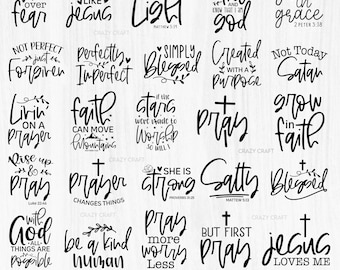 over fear
LIKE Jesus
Light
MATTHEW 5:14
KNOW THAT I AM
god
in grace
2 PETER 3:18
NOT PERFECT
just
Forgiven
Perfectly
Imperfect
SIMPLY
Blessed
Created
WITH A
PURPOSE
Not Today
Satan
LIVIN'
ON A
prayer
faith
CAN MOVE
Mountains
if the
STARS
were made to
Worship
SO WILL I
pray
grow
in
faith
Rise up
&
pray
LUKE 22:46
prayer
CHANGES THINGS
SHE IS
strong
PROVERBS 31:25
Salty
MATTHEW 5:13
Blessed
with
God
ALL
THINGS ARE
POSSIBLE
be a kind
human
pray
more
worry
Less
BUT FIRST
pray
Jesus
LOVES ME
CRAZY CRAFT
CRAZY CRAFT
CRAZY CRAFT
CRAZY CRAFT